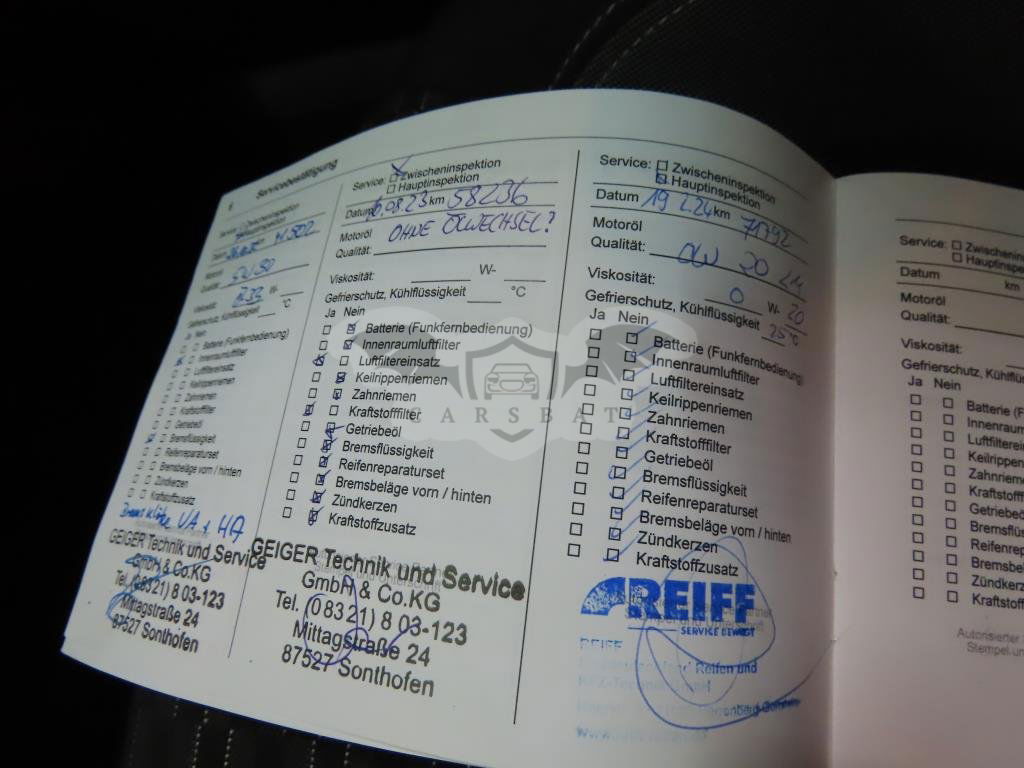 6 Servicebestätigung
Zwischeninspektion
Hauptinspektion
Viskosität: W-
Gefrierschutz, Kühlflüssigkeit °C
Ja Nein
Batterie (Funkfernbedienung)
Innenraumluftfilter
Luftfiltereinsatz
Keilrippenriemen
Zahnriemen
Kraftstofffilter
Getriebeöl
Bremsflüssigkeit
Reifenreparaturset
Bremsbeläge vorn / hinten
Zündkerzen
Kraftstoffzusatz
VA + HA
GEIGER Technik und Service
GmbH & Co.KG
Tel. (08321) 8 03-123
Mittagstraße 24
87527 Sonthofen
Service: Zwischeninspektion
Hauptinspektion
Datum 08.23 km 58236
Motoröl OHNE ÖLWECHSEL?
Qualität:
Viskosität: W-
Gefrierschutz, Kühlflüssigkeit °C
Ja Nein
Batterie (Funkfernbedienung)
Innenraumluftfilter
Luftfiltereinsatz
Keilrippenriemen
Zahnriemen
Kraftstofffilter
Getriebeöl
Bremsflüssigkeit
Reifenreparaturset
Bremsbeläge vorn / hinten
Zündkerzen
Kraftstoffzusatz
GEIGER Technik und Service
GmbH & Co.KG
Tel. (08321) 8 03-123
Mittagstraße 24
87527 Sonthofen
Service: Zwischeninspektion
Hauptinspektion
Datum 19 2.24 km 71792
Motoröl
Qualität:
Viskosität: 0 W- 20
Gefrierschutz, Kühlflüssigkeit 25 °C
Ja Nein
Batterie (Funkfernbedienung)
Innenraumluftfilter
Luftfiltereinsatz
Keilrippenriemen
Zahnriemen
Kraftstofffilter
Getriebeöl
Bremsflüssigkeit
Reifenreparaturset
Bremsbeläge vorn / hinten
Zündkerzen
Kraftstoffzusatz
REIFF
SERVICE BEWEGT
REIFF
Reifen und
Service: Zwischeninspektion
Hauptinspe
Datum km
Motoröl
Qualität:
Viskosität:
Gefrierschutz, Kühlflüssi
Ja Nein
Batterie (F
Innenraum
Luftfilterei
Keilrippen
Zahnrieme
Kraftstofff
Getriebeö
Bremsflü
Reifenrep
Bremsbel
Zündkerz
Kraftstoff
Autorisierter
Stempel un
CARSBAT